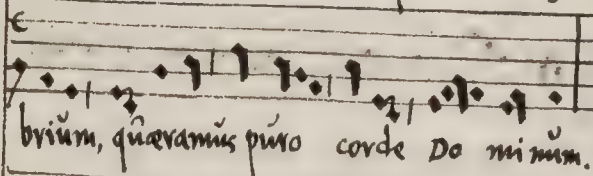 brium, quæramus puro corde Do minum.